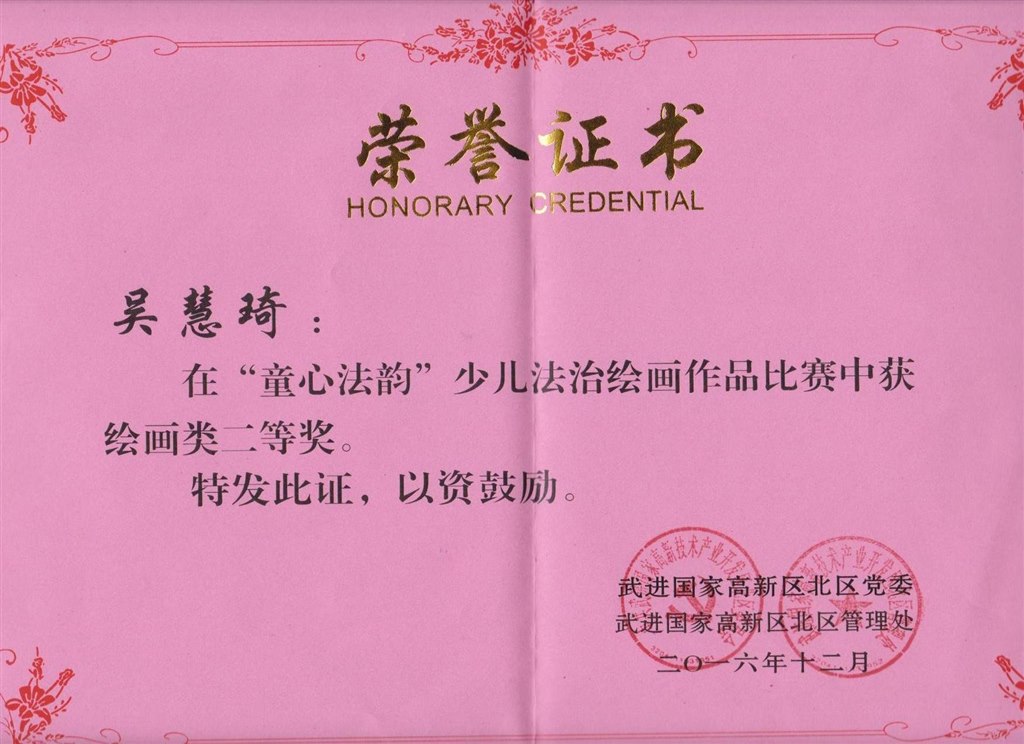 荣誉证书
HONORARY CREDENTIAL
吴慧琦：
在“童心法韵”少儿法治绘画作品比赛中获
绘画类二等奖。
特发此证，以资鼓励。
武进国家高新区北区党委
武进国家高新区北区管理处
二〇一六年十二月